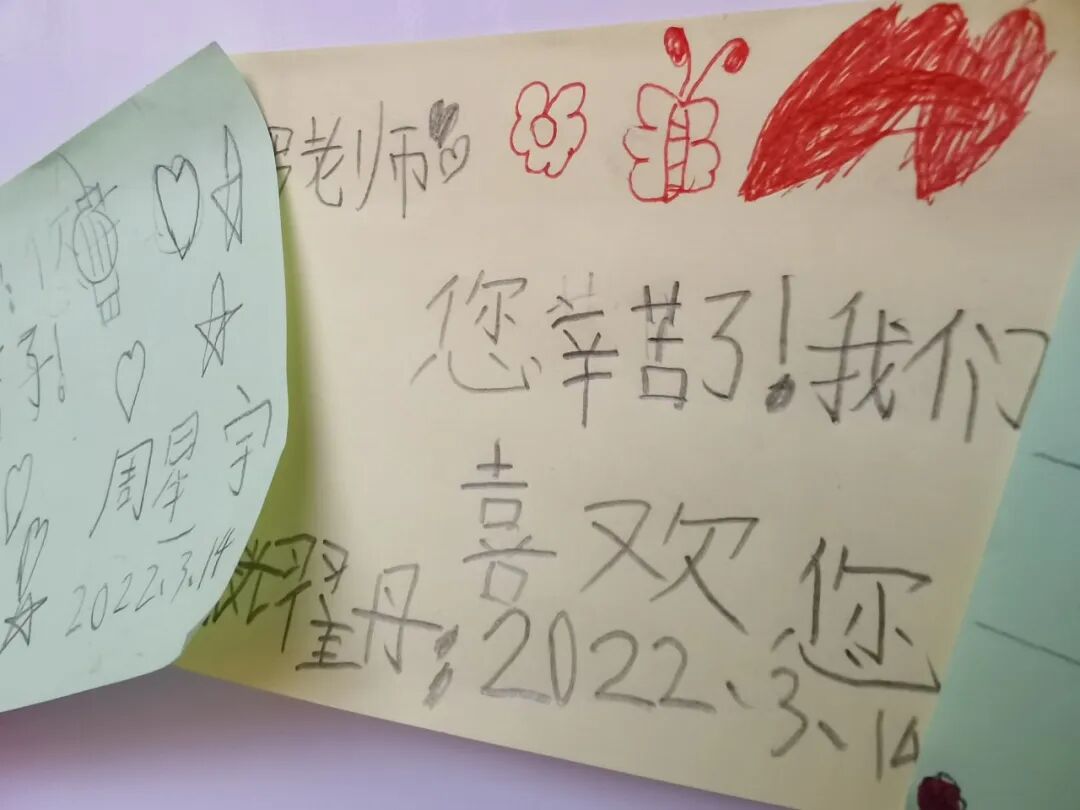 老师
您辛苦了!我们
喜欢您
丹
2022.3.14
你
子!
周星宇
2022.3.14